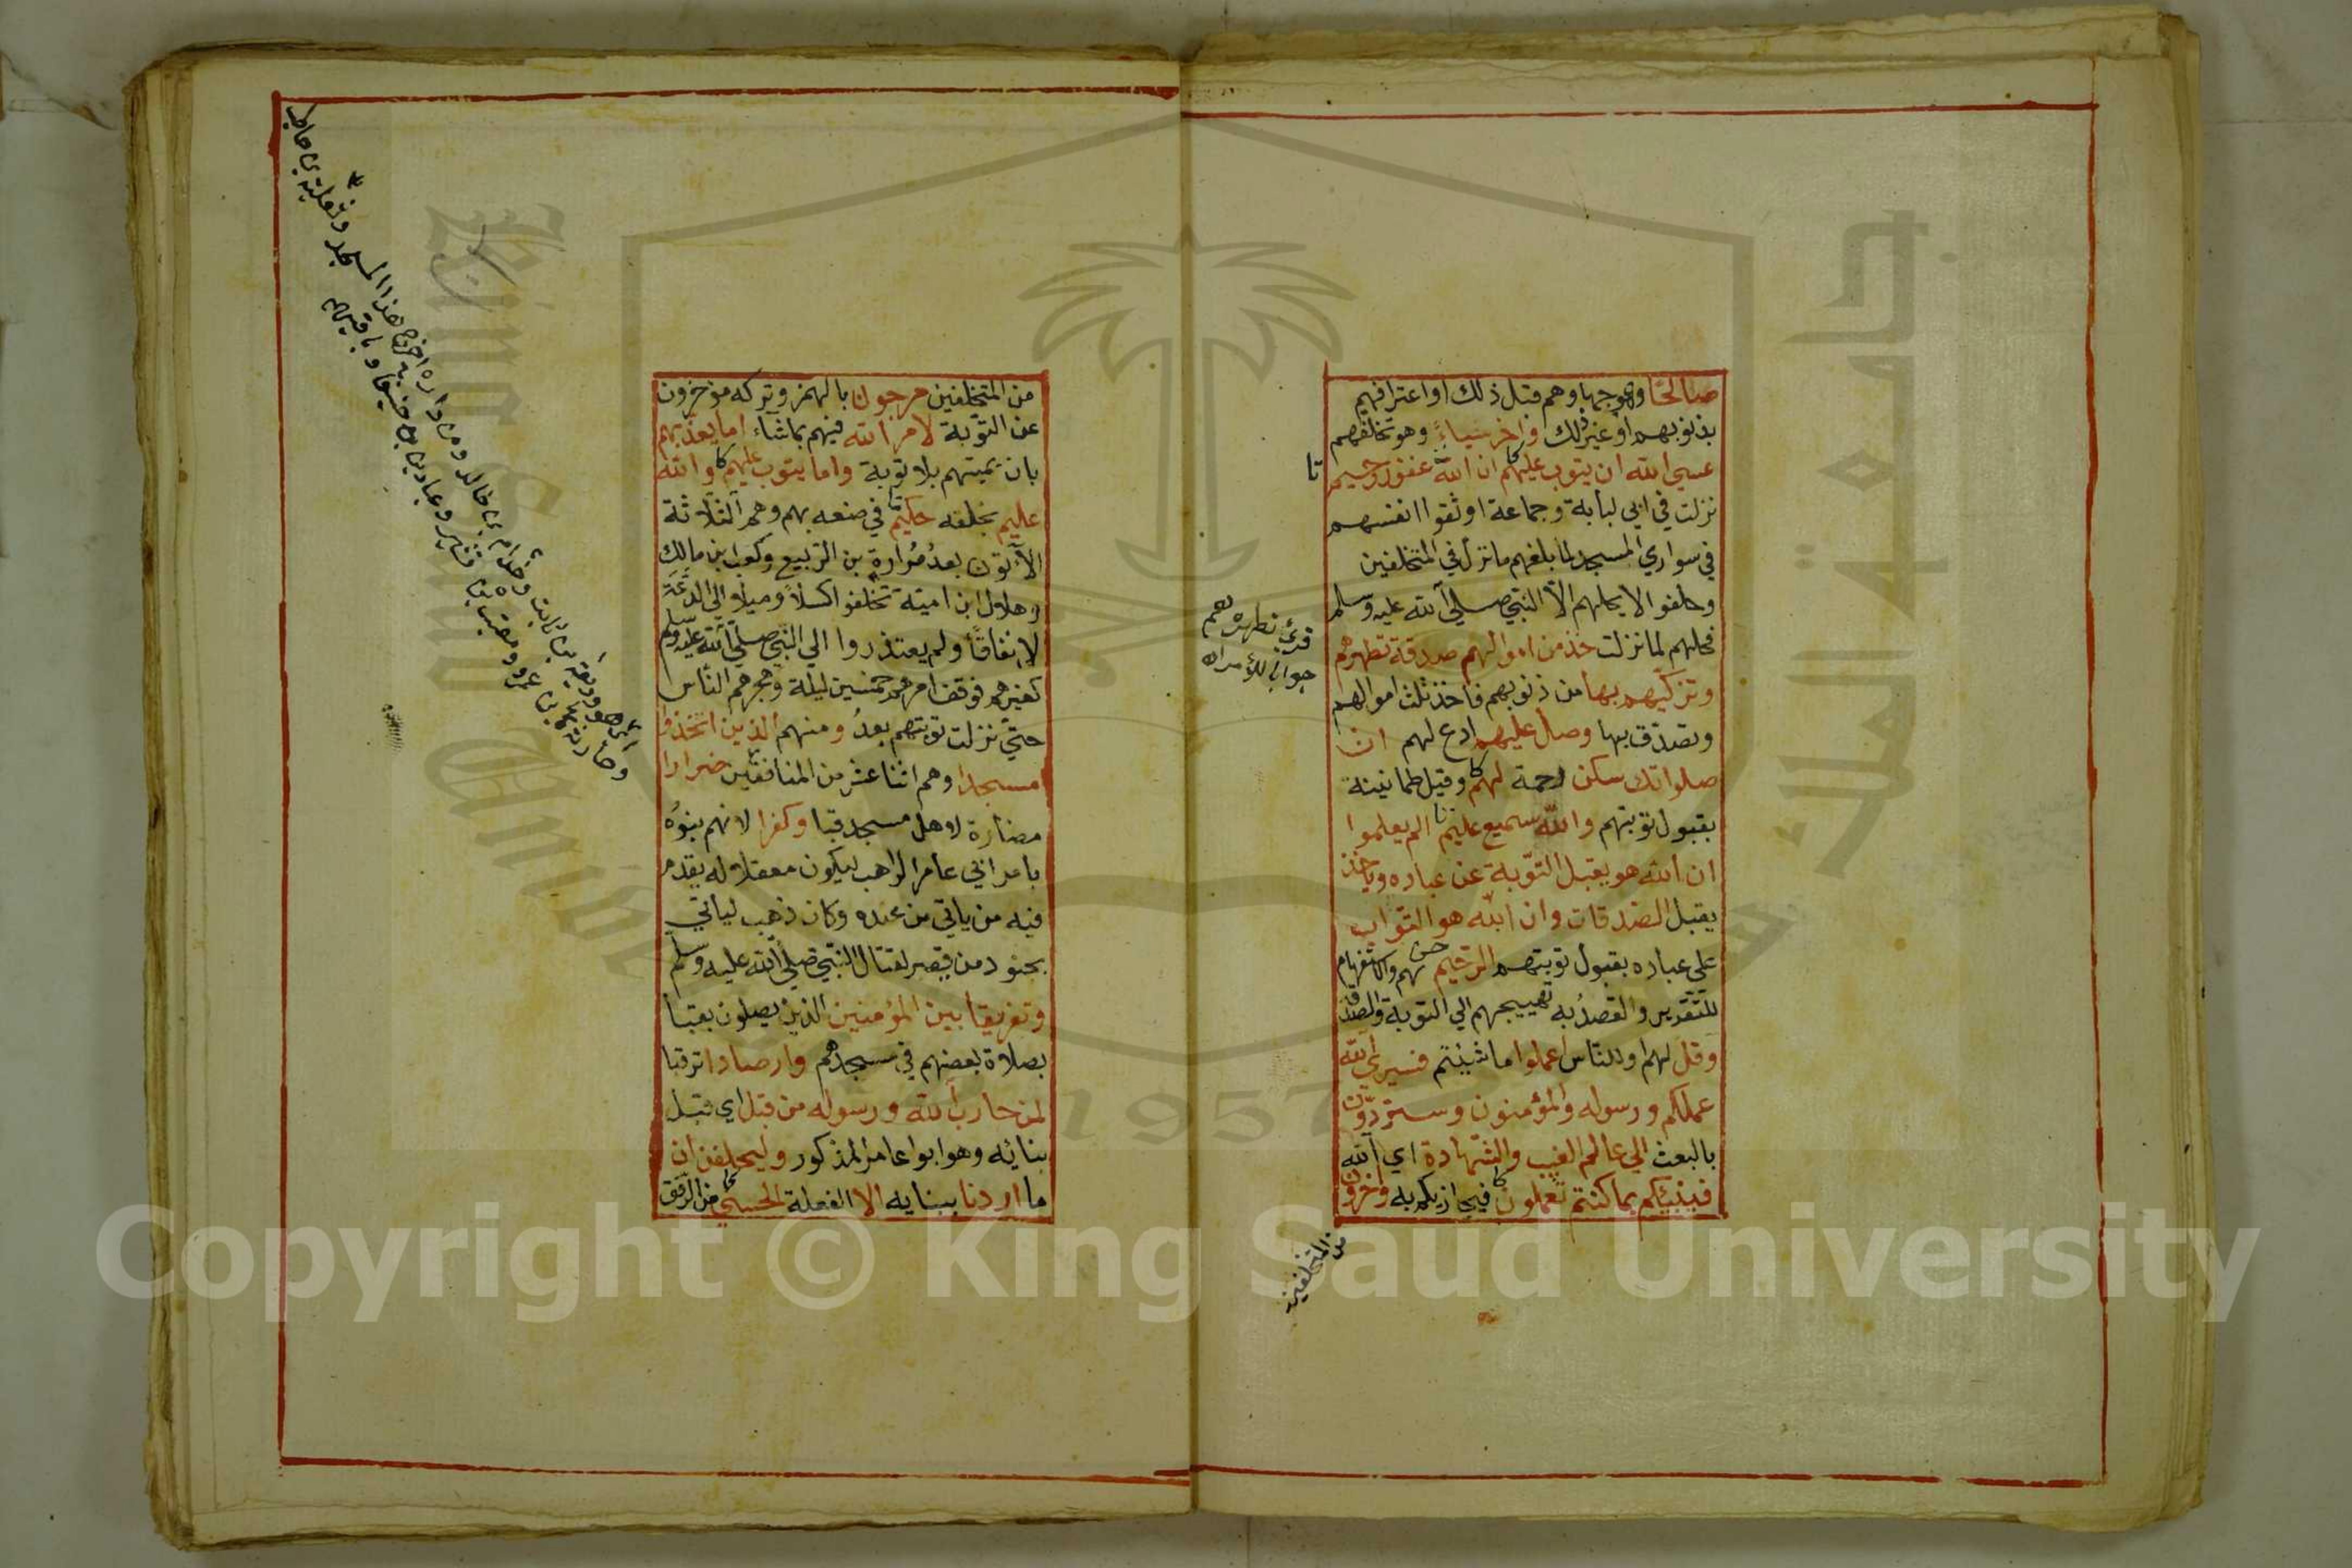 صالحا وهو جهادهم قبل ذلك او اعترافهم
بذنوبهم او غير ذلك واخر سياء وهو تخلفهم
عسي الله ان يتوب عليهم ان الله غفور رحيم
نزلت في ابي لبابة وجماعة اوثقوا انفسهم
في سواري المسجد لما بلغهم ما نزل في المتخلفين
وحلفوا لا يحلهم الا النبي صلي الله عليه وسلم
فحلهم لما نزلت خذ من اموالهم صدقة تطهرهم
وتزكيهم بها من ذنوبهم فاخذ ثلث اموالهم
وتصدق بها وصل عليهم ادع لهم ان
صلواتك سكن رحمة لهم وقيل طمانينة
بقبول توبتهم والله سميع عليم الم يعلموا
ان الله هو يقبل التوبة عن عباده وياخذ
يقبل الصدقات وان الله هو التواب
علي عباده بقبول توبتهم الرحيم بهم والاستفهام
للتقدير والقصد به تهييجهم الي التوبة والصدقة
وقل لهم او للناس اعملوا ما شيئتم فسيري الله
عملكم ورسوله والمؤمنون وستردون
بالبعث الي عالم الغيب والشهادة اي الله
فينبئكم بما كنتم تعملون فيجازيكم به واخرون
من المتخلفين
قرئ تطهرهم
جوابا للأمر
من المتخلفين مرجون بالهمز وتركه مؤخرون
عن التوبة لامر الله فيهم بما شاء اما يعذبهم
بان يميتهم بلا توبة واما يتوب عليهم والله
عليم بخلقه حكيم في صنعه بهم وهم الثلاثة
الآتون بعد مرارة بن الربيع وكعب بن مالك
وهلال ابن امية تخلفوا كسلا وميلا الي الدعة
لا نفاقا ولم يعتذروا الي النبي صلي الله عليه وسلم
كغيرهم فوقف امرهم خمسين ليلة وهجرهم الناس
حتي نزلت توبتهم بعد ومنهم الذين اتخذوا
مسجدا وهم اثنا عشر من المنافقين ضرارا
مضارة لاهل مسجد قبا وكفرا لانهم بنوه
بامر ابي عامر الراهب ليكون معقلا له يقدم
فيه من ياتي من عنده وكان ذهب لياتي
بجنود من قيصر لقتال النبي صلي الله عليه وسلم
وتفريقا بين المؤمنين الذين يصلون بقبا
بصلاة بعضهم في مسجدهم وارصادا ترقبا
لمن حارب الله ورسوله من قبل اي قبل
بنائه وهو ابوا عامر المذكور وليحلفن ان
ما اردنا ببنايه الا الفعلة الحسني من الرفق
Copyright © King Saud University
1957